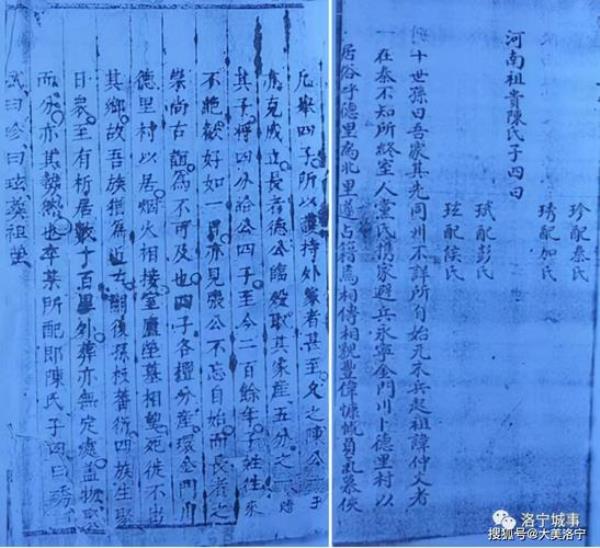 珍配秦氏
琇配加氏
珷配彭氏
玹配侯氏
河南祖貴陳氏子四曰
十世孫曰吾家其先同州不詳所自始元末兵起祖諱仲文者
在秦不知所終室人黨氏携家避兵永寧金門川卜德里村以
居俗乎德里為北里遂占籍焉相傳相親豐偉慷慨負氣慕俠
凡舉四子所以護持外家者甚至久之陳公子
亦克成立長者德公臨歿取其家産五分之一賂
其子將四分給公四子至今二百餘年子姓往來
不絶歡好如一日亦見張公不忘自始而長者之
崇尚古誼為不可及也四子各擅分産環金門川
德里村以居烟火相接室廬塋墓相望死徙不出
其鄉故吾族猶為近古嗣後孫枝蕃衍四族生聚
日衆至有析居數十百里外葬亦無定處蓋物聚
而分亦其勢然也卒葬所配即陳氏子四曰琇
珷曰珍曰玹葬祖塋
洛宁城事
搜狐号@大美洛宁